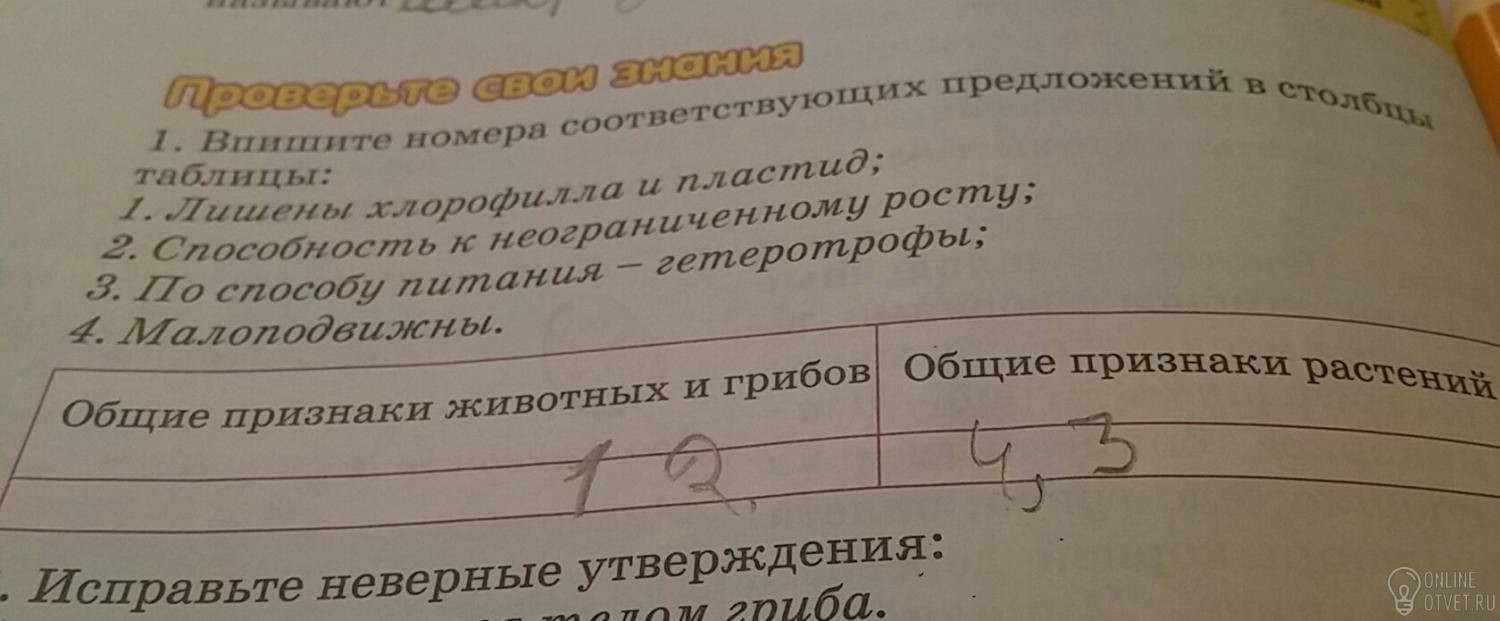 Проверьте свои знания
1. Впишите номера соответствующих предложений в столбцы
таблицы:
1. Лишены хлорофилла и пластид;
2. Способность к неограниченному росту;
3. По способу питания – гетеротрофы;
4. Малоподвижны.
Общие признаки животных и грибов Общие признаки растений
1 2, 4, 3
. Исправьте неверные утверждения:
телом гриба.
ONLINE
OTVET.RU